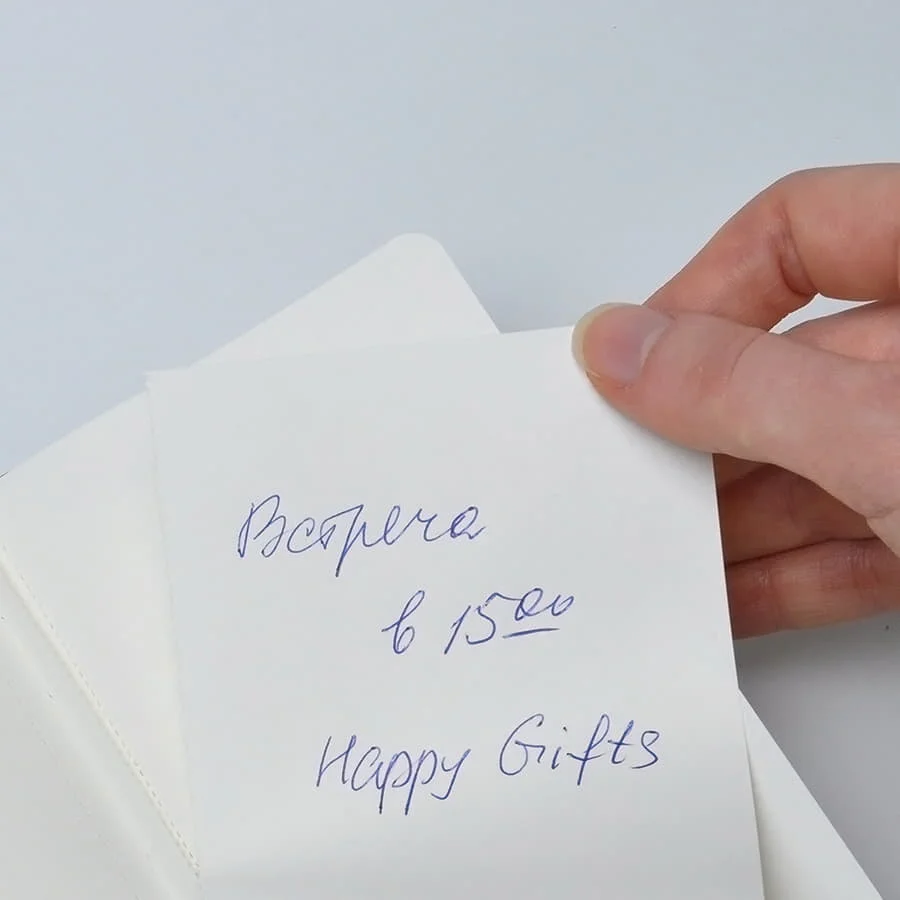 Встреча
в 15 00
Happy Gifts